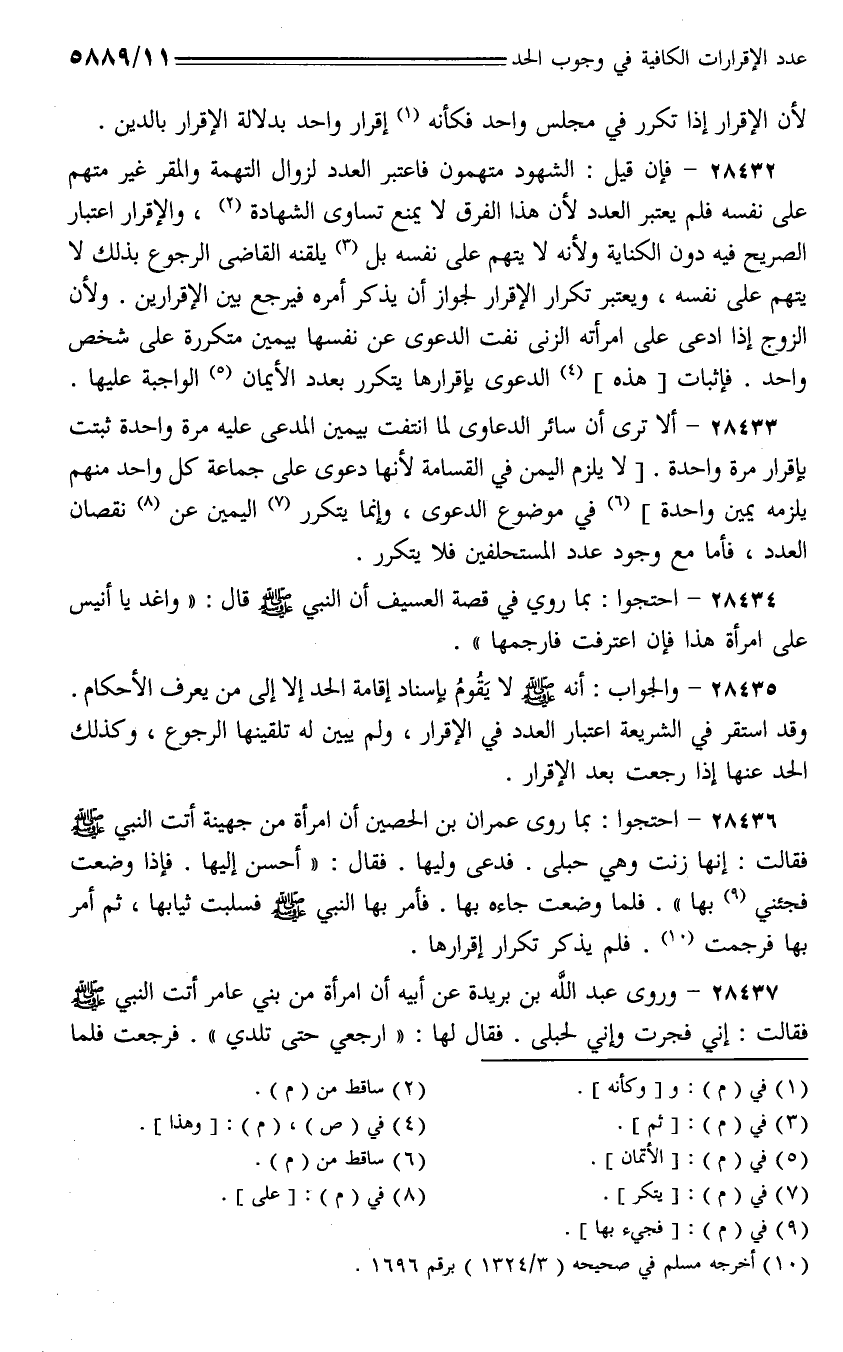 عدد الإقرارات الكافية في وجوب الحد ٥٨٨٩/١١
لأن الإقرار إذا تكرر في مجلس واحد فكأنه (١) إقرار واحد بدلالة الإقرار بالدين .
٢٨٤٣٢ - فإن قيل : الشهود متهمون فاعتبر العدد لزوال التهمة والمقر غير متهم
على نفسه فلم يعتبر العدد لأن هذا الفرق لا يمنع تساوى الشهادة (٢) ، والإقرار اعتبار
الصريح فيه دون الكناية ولأنه لا يتهم على نفسه بل (٣) يلقنه القاضى الرجوع بذلك لا
يتهم على نفسه ، ويعتبر تكرار الإقرار لجواز أن يذكر أمره فيرجع بين الإقرارين . ولأن
الزوج إذا ادعى على امرأته الزنى نفت الدعوى عن نفسها بيمين متكررة على شخص
واحد . فإثبات [ هذه ] (٤) الدعوى بإقرارها يتكرر بعدد الأيمان (٥) الواجبة عليها .
٢٨٤٣٣ - ألا ترى أن سائر الدعاوى لما انتفت بيمين المدعى عليه مرة واحدة ثبتت
بإقرار مرة واحدة . [ لا يلزم اليمن في القسامة لأنها دعوى على جماعة كل واحد منهم
يلزمه يمين واحدة ] (٦) في موضوع الدعوى ، وإنما يتكرر (٧) اليمين عن (٨) نقصان
العدد ، فأما مع وجود عدد المستحلفين فلا يتكرر .
٢٨٤٣٤ - احتجوا : بما روي في قصة العسيف أن النبي ﷺ قال : « واغد يا أنيس
على امرأة هذا فإن اعترفت فارجمها » .
٢٨٤٣٥ - والجواب : أنه ﷺ لا يَقُومُ بإسناد إقامة الحد إلا إلى من يعرف الأحكام .
وقد استقر في الشريعة اعتبار العدد في الإقرار ، ولم يبين له تلقينها الرجوع ، وكذلك
الحد عنها إذا رجعت بعد الإقرار .
٢٨٤٣٦ - احتجوا : بما روى عمران بن الحصين أن امرأة من جهينة أتت النبي ﷺ
فقالت : إنها زنت وهي حبلى . فدعى وليها . فقال : « أحسن إليها . فإذا وضعت
فجئني (٩) بها » . فلما وضعت جاءه بها . فأمر بها النبي ﷺ فسلبت ثيابها ، ثم أمر
بها فرجمت (١٠) . فلم يذكر تكرار إقرارها .
٢٨٤٣٧ - وروى عبد اللَّه بن بريدة عن أبيه أن امرأة من بني عامر أتت النبي ﷺ
فقالت : إني فجرت وإني لحبلى . فقال لها : « ارجعي حتى تلدي » . فرجعت فلما
(١) في ( م ) : و [ وكأنه ] . (٢) ساقط من ( م ) .
(٣) في ( م ) : [ ثم ] . (٤) في ( ص ) ، ( م ) : [ وهذا ] .
(٥) في ( م ) : [ الأتمان ] . (٦) ساقط من ( م ) .
(٧) في ( م ) : [ يتكر ] . (٨) في ( م ) : [ على ] .
(٩) في ( م ) : [ فجيء بها ] .
(١٠) أخرجه مسلم في صحيحه ( ١٣٢٤/٣ ) برقم ١٦٩٦ .